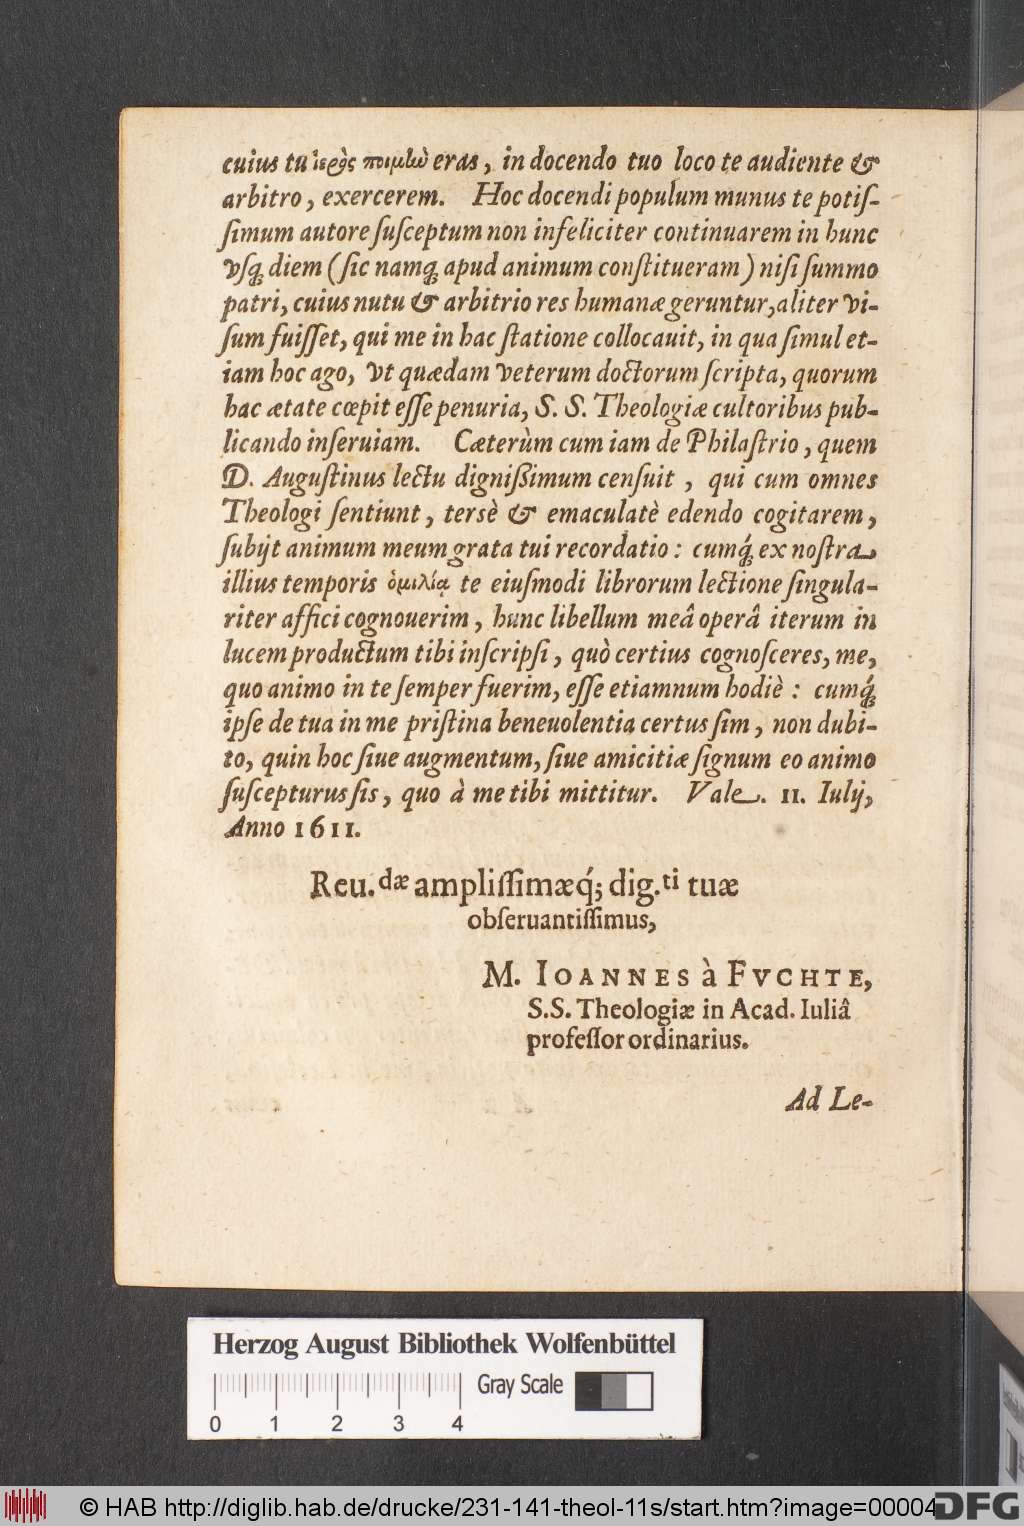 cuius tu ἱερὸς ποιμὼ eras, in docendo tuo loco te audiente &
arbitro, exercerem. Hoc docendi populum munus te potiſ-
ſimum autore ſuſceptum non infeliciter continuarem in hunc
vſq́ diem (ſic namq́ apud animum conſtitueram) niſi ſummo
patri, cuius nutu & arbitrio res humanæ geruntur, aliter vi-
ſum fuiſſet, qui me in hac ſtatione collocauit, in qua ſimul et-
iam hoc ago, vt quædam veterum doctorum ſcripta, quorum
hac ætate cœpit eſſe penuria, S. S. Theologiæ cultoribus pub-
licando inſeruiam. Cæterùm cum iam de Philaſtrio, quem
D. Auguſtinus lectu digniſſimum cenſuit, qui cum omnes
Theologi ſentiunt, tersè & emaculatè edendo cogitarem,
ſubijt animum meum grata tui recordatio: cumq́ ex noſtra
illius temporis ὁμιλίᾳ te eiuſmodi librorum lectione ſingula-
riter affici cognouerim, hunc libellum meâ operâ iterum in
lucem productum tibi inſcripſi, quò certius cognoſceres, me,
quo animo in te ſemper fuerim, eſſe etiamnum hodiè: cumq́
ipſe de tua in me priſtina beneuolentia certus ſim, non dubi-
to, quin hoc ſiue augmentum, ſiue amicitiæ ſignum eo animo
ſuſcepturus ſis, quo à me tibi mittitur. Vale. 11. Iulij,
Anno 1611.
Reu.dæ ampliſſimæq́; dig.ti tuæ
obſeruantiſſimus,
M. IOANNES à FVCHTE,
S.S. Theologiæ in Acad. Iuliâ
profeſſor ordinarius.
Ad Le-
Herzog August Bibliothek Wolfenbüttel
Gray Scale
0 1 2 3 4
© HAB http://diglib.hab.de/drucke/231-141-theol-11s/start.htm?image=00004
DFG